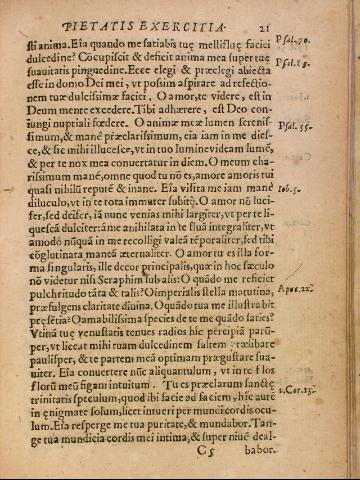 PIETATIS EXERCITIA. 21
sti anima. Eia quando me satiabis tuę mellifluę faciei Psal. 70.
dulcedine? Cōcupiscit & deficit anima mea super tuę
suauitatis pinguedine. Ecce elegi & præelegi abiecta Psal. 83.
esse in domo Dei mei, vt possim aspirare ad refectio-
nem tuæ dulcissimæ faciei. O amor, te videre, est in
Deum mente excedere. Tibi adhærere, est Deo con-
iungi nuptiali fœdere. O animæ meæ lumen serenis-
simum, & manè præclarissimum, eia iam in me dies- Psal. 35.
ce, & sic mihi illucesce, vt in tuo lumine videam lumē,
& per te nox mea conuertatur in diem. O meum cha-
rissimum mane, omne quod tu nō es, amore amoris tui
quasi nihilū reputē & inane. Eia visita me iam manè Iob. 5.
diluculo, vt in te tota immuter subitò. O amor nō luci-
fer, sed deifer, iā nunc venias mihi largiter, vt per te li-
quescā dulciter: à me anihilata in te fluā integraliter, vt
amodò nūquā in me recolligi valeā tēporaliter, sed tibi
cōglutinata maneā æternaliter. O amor tu es illa for-
ma singularis, ille decor principalis, quæ in hoc sæculo
nō videtur nisi Seraphim sub alis: O quādo me reficiet
pulchritudo tāta & talis? O imperialis stella matutina, Apoc. 22.
præfulgens claritate diuina. O quādo tua me illustrabit
pręsētia? O amabilissima species de te me quādo saties?
Vtinā tuę venustatis tenues radios hic percipiā parū-
per, vt liceat mihi tuam dulcedinem saltem prælibare
paulisper, & te partem meā optimam prægustare sua-
uiter. Eia conuertere nūc aliquantulum, vt in te flos
florū meū figam intuitum. Tu es præclarum sanctę
trinitatis speculum, quod ibi facie ad faciem, hīc autē 1. Cor. 13.
in ęnigmate solum, licet intueri per mundi cordis ocu-
lum. Eia resperge me tua puritate, & mundabor. Tan-
ge tua mundicia cordis mei intima, & super niuē deal-
C5 babor.